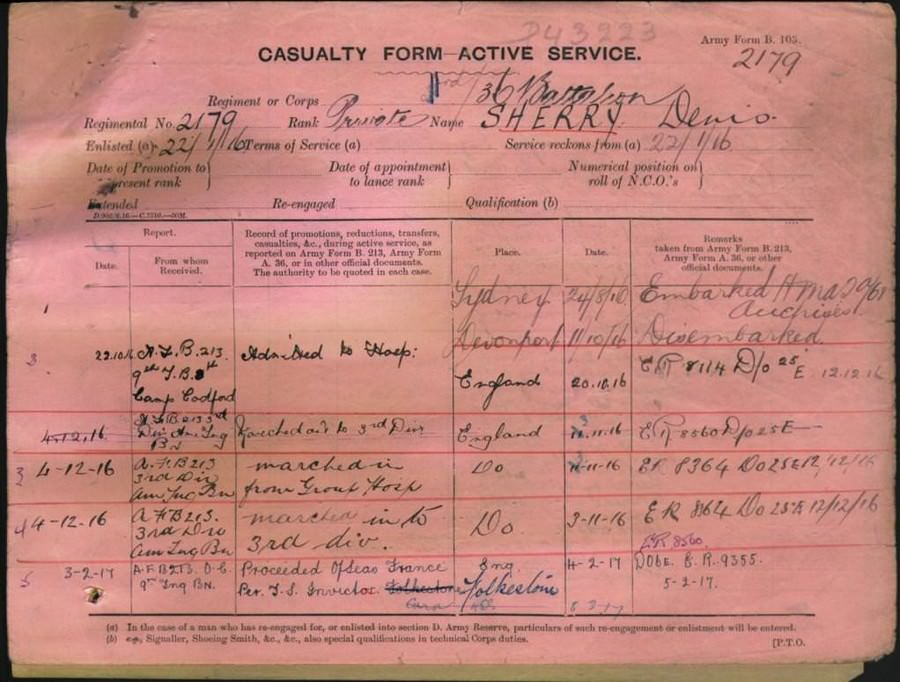 D43223
Army Form B. 103.
CASUALTY FORM—ACTIVE SERVICE.
2179
Regiment or Corps 36 Battalion
Regimental No. 2179 Rank Private Name SHERRY Denis
Enlisted (a) 22/1/16 Terms of Service (a) Service reckons from (a) 22/1/16
Date of Promotion to present rank } Date of appointment to lance rank } Numerical position on roll of N.C.O.'s }
Extended Re-engaged Qualification (b)
Report. Record of promotions, reductions, transfers, casualties, &c., during active service, as reported on Army Form B. 213, Army Form A. 36, or in other official documents. The authority to be quoted in each case. Place. Date. Remarks taken from Army Form B. 213, Army Form A. 36, or other official documents.
Date. From whom Received.
1 Sydney 24/8/16 Embarked
Anchises
Devonport 11/10/16 Disembarked
3 22.10.16 A.F.B. 213. Admitted to Hosp: England 20.10.16 8114 D/o 25 E. 12.12.16
9th T.B.
Camp Codford
4.12.16 3rd Div to 3rd Div England 11.16 8560 D/o 25E
3 4-12-16 A.F.B 213 marched in Do 11-16 ER 8364 Do 25E 12/12/16
3rd Div from Group Hosp
4 4-12-16 A F B 213. marched in to Do 3-11-16 ER 864 Do 25E 12/12/16
3rd Div 3rd div. ER 8560
5 3-2-17 A.F.B 213. O.C. Proceeded O/seas France Eng 4-2-17 E.R. 9355.
9th Tng BN. Per. T.S. Invicta. Folkestone Folkestone 5-2-17.
(a) In the case of a man who has re-engaged for, or enlisted into section D. Army Reserve, particulars of such re-engagement or enlistment will be entered.
(b) e.g., Signaller, Shoeing Smith, &c., &c., also special qualifications in technical Corps duties.
[P.T.O.